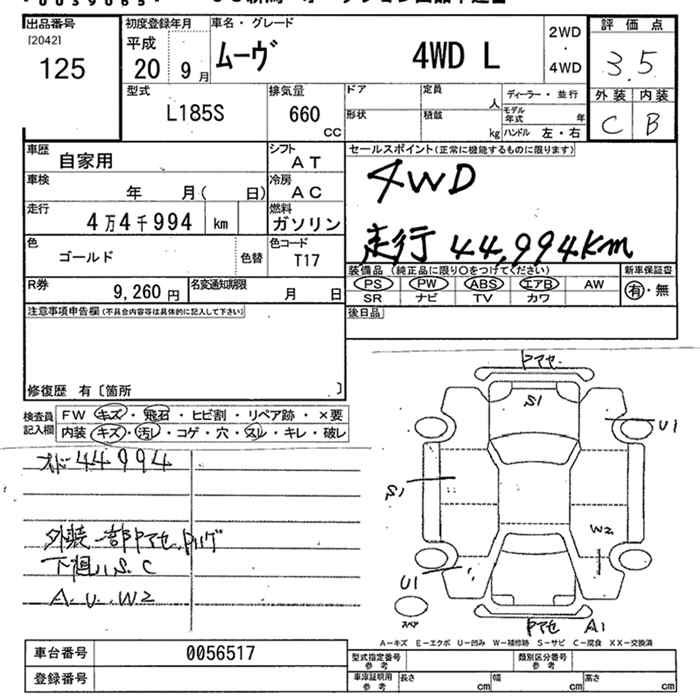 出品番号
[20421
125
初度登録年月
平成
20 9月
車名・グレード
ムーヴ 4WD L
2WD
・
4WD
評価点
3.5
外装 内装
C B
型式
L185S
排気量
660
CC
ドア
定員
人
ディーラー・並行
形状
積載
kg
モデル年式 年
ハンドル 左・右
車歴
自家用
シフト
AT
車検
年 月( 日)
冷房
AC
走行
4万4千994 km
燃料
ガソリン
色
ゴールド
色替
色コード
T17
R券
9,260円
名変通知期限
月 日
セールスポイント(正常に機能するものに限ります)
4WD
走行 44,994km
装備品(純正品に限り○をつけてください)
PS PW ABS エアB AW
SR ナビ TV カワ
新車保証書
有・無
後日品
注意事項申告欄(不具合内容等は具体的に記入して下さい)
修復歴 有〔箇所 〕
検査員記入欄
FW キズ・飛石・ヒビ割・リペア跡・×要
内装 キズ・汚レ・コゲ・穴・スレ・キレ・破レ
オド 44994
外装一部ヤケアセ
下廻りS.C
A.U.W2
S1
U1
S1
W2
U1
スペア
A1
A-キズ E-エクボ U-凹み W-補修跡 S-サビ C-腐食 XX-交換済
車台番号
0056517
登録番号
型式指定番号
参考
類別区分番号
参考
車庫証明用
参考
長さ cm
幅 cm
高さ cm